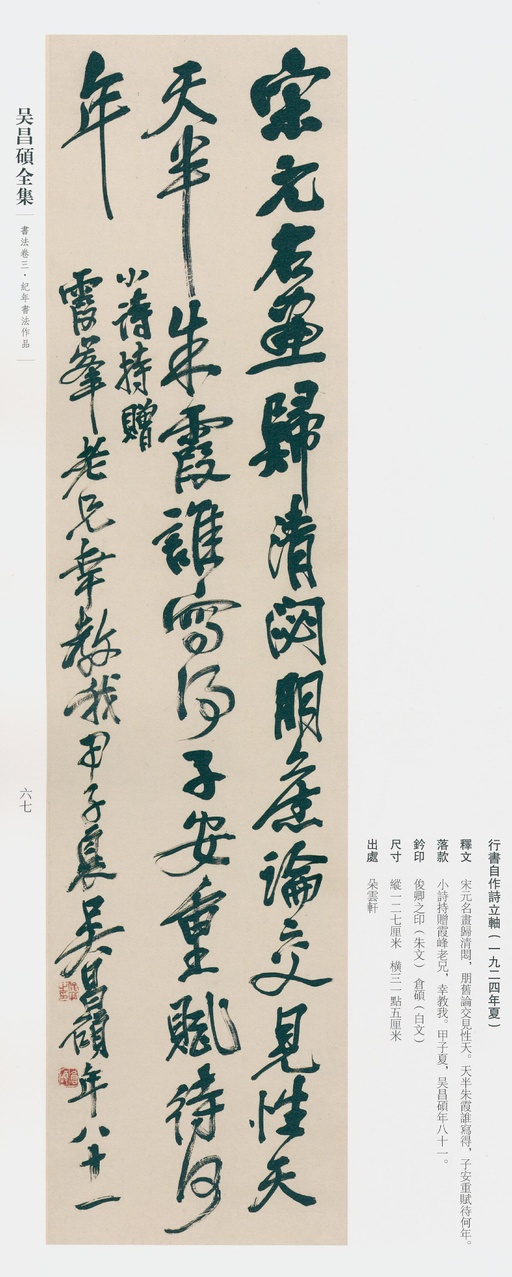 宋元名畫歸清閟朋舊論交見性天
天半朱霞誰寫得子安重賦待何
年
小詩持贈
霞峯老兄幸教我甲子夏吳昌碩年八十一
行書自作詩立軸（一九二四年夏）
釋文　宋元名畫歸清閟，朋舊論交見性天。天半朱霞誰寫得，子安重賦待何年。
落款　小詩持贈霞峰老兄，幸教我。甲子夏，吴昌碩年八十一。
鈐印　俊卿之印（朱文）　倉碩（白文）
尺寸　縱一二七厘米　橫三一點五厘米
出處　朵雲軒
吴昌碩全集
書法卷三·紀年書法作品
六七